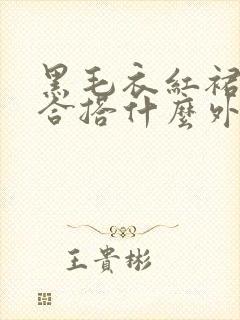 黑毛衣紅裙
合搭什麼外
王貴彬